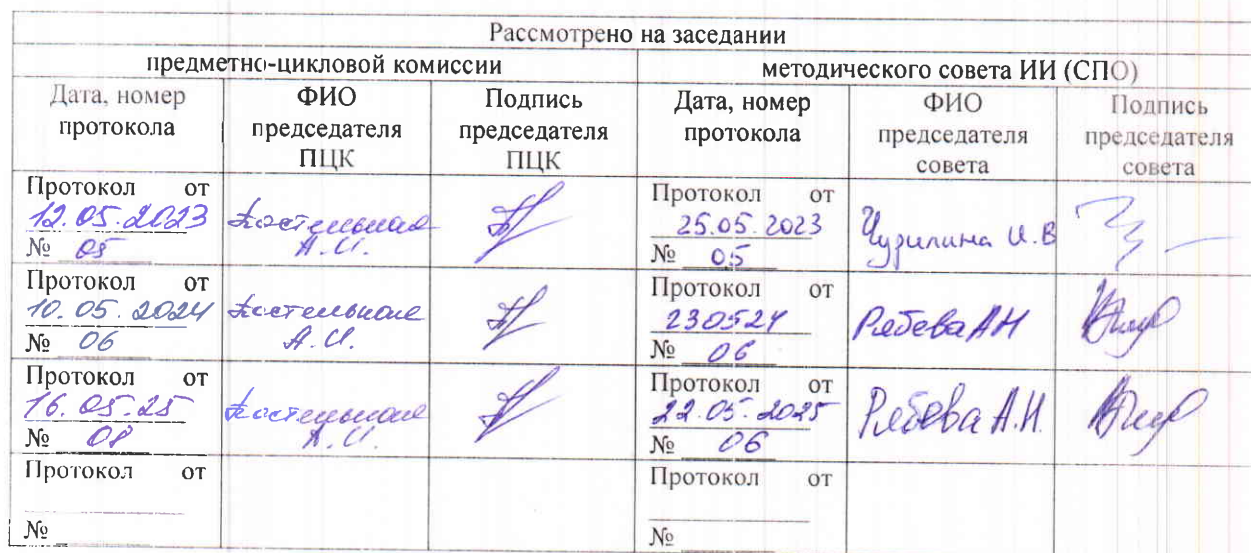 Рассмотрено на заседании
предметно-цикловой комиссии
методического совета ИИ (СПО)
Дата, номер
протокола
ФИО
председателя
ПЦК
Подпись
председателя
ПЦК
Дата, номер
протокола
ФИО
председателя
совета
Подпись
председателя
совета
Протокол от
12.05.2023
№ 05
Костельная
А.И.
Протокол от
25.05.2023
№ 05
Чурилина И.В
Протокол от
10.05.2024
№ 06
Костельная
А.И.
Протокол от
230524
№ 06
Рябева АН
Протокол от
16.05.25
№ 08
Костельная
А.И.
Протокол от
22.05.2025
№ 06
Рябева А.Н.
Протокол от
№
Протокол от
№